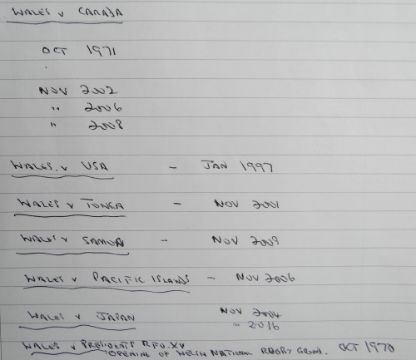 WALES v CANADA
OCT 1971
NOV 2002
" 2006
" 2008
WALES v USA - JAN 1997
WALES v TONGA - NOV 2001
WALES v SAMOA - NOV 2009
WALES v PACIFIC ISLANDS - NOV 2006
WALES v JAPAN NOV 2004
" 2016
WALES v PRESIDENT'S XV
OPENING OF WELSH NATIONAL RUGBY GROUND. OCT 1970